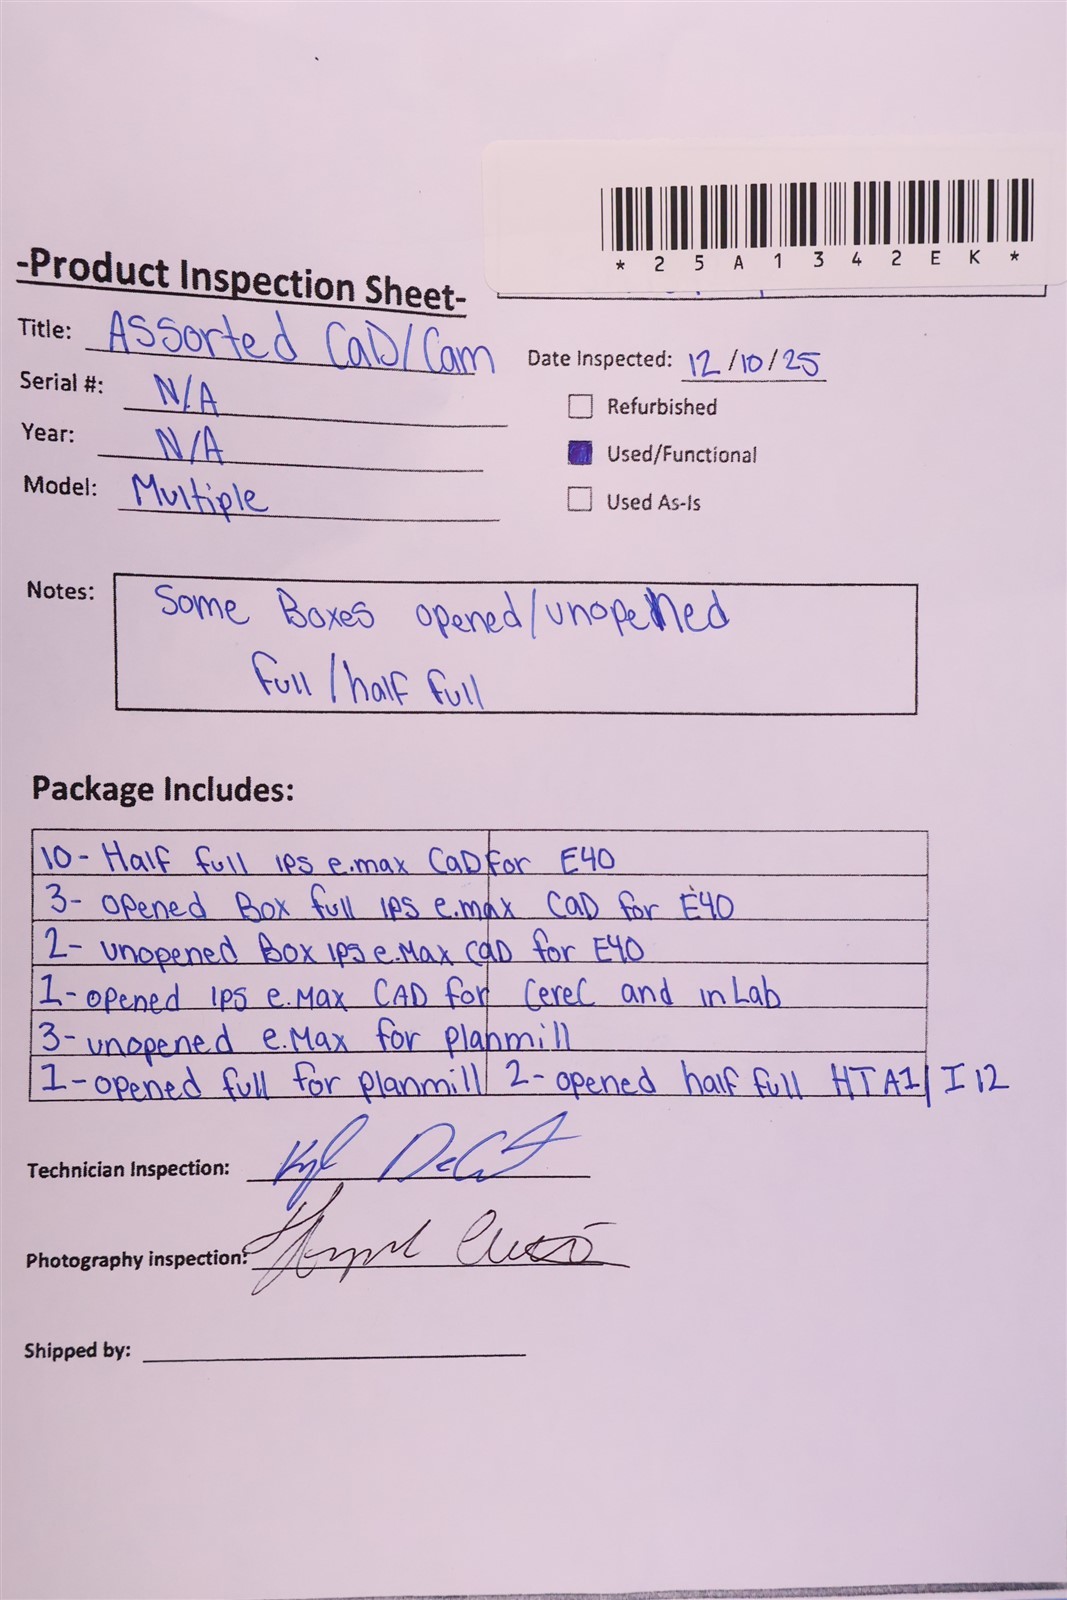 * 2 5 A 1 3 4 2 E K *
-Product Inspection Sheet-
Title: Assorted CaD/Cam
Date Inspected: 12/10/25
Serial #: N/A
Refurbished
Year: N/A
Used/Functional
Model: Multiple
Used As-Is
Notes: Some Boxes opened/unopened
full/half full
Package Includes:
10- Half full ips e.max CaD for E40
3- opened Box full ips e.max CaD for E40
2- unopened Box ips e.Max caD for E40
1- opened ips e.Max CAD for CereC and inLab
3- unopened e.Max for planmill
1- opened full for planmill 2- opened half full HTA1/I12
Technician Inspection:
Photography inspection:
Shipped by: